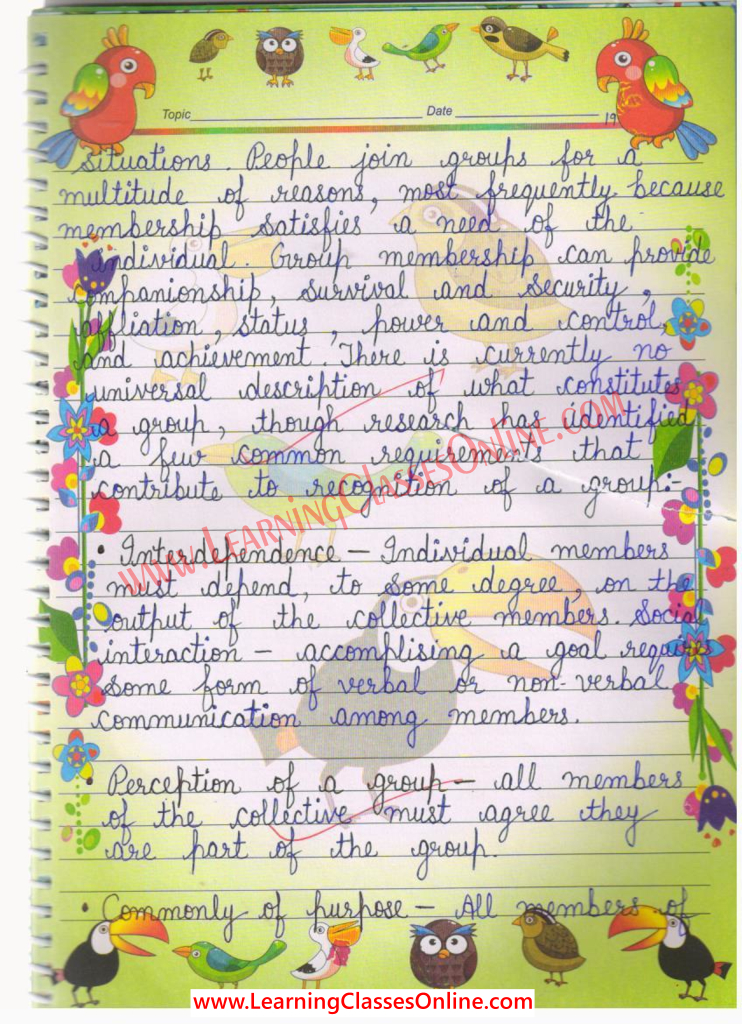 Topic Date 19
situations. People join groups for a
multitude of reasons, most frequently because
membership satisfies a need of the
individual. Group membership can provide
companionship, survival and security,
affiliation, status, power and control,
and achievement. There is currently no
universal description of what constitutes
a group, though research has identified
a few common requirements that
contribute to recognition of a group:-
www.LearningClassesOnline.com
• Interdependence – Individual members
must depend, to some degree, on the
output of the collective members. Social
interaction – accomplising a goal requires
some form of verbal or non-verbal
communication among members.
• Perception of a group – all members
of the collective must agree they
are part of the group.
• Commonly of purpose – All members of
www.LearningClassesOnline.com